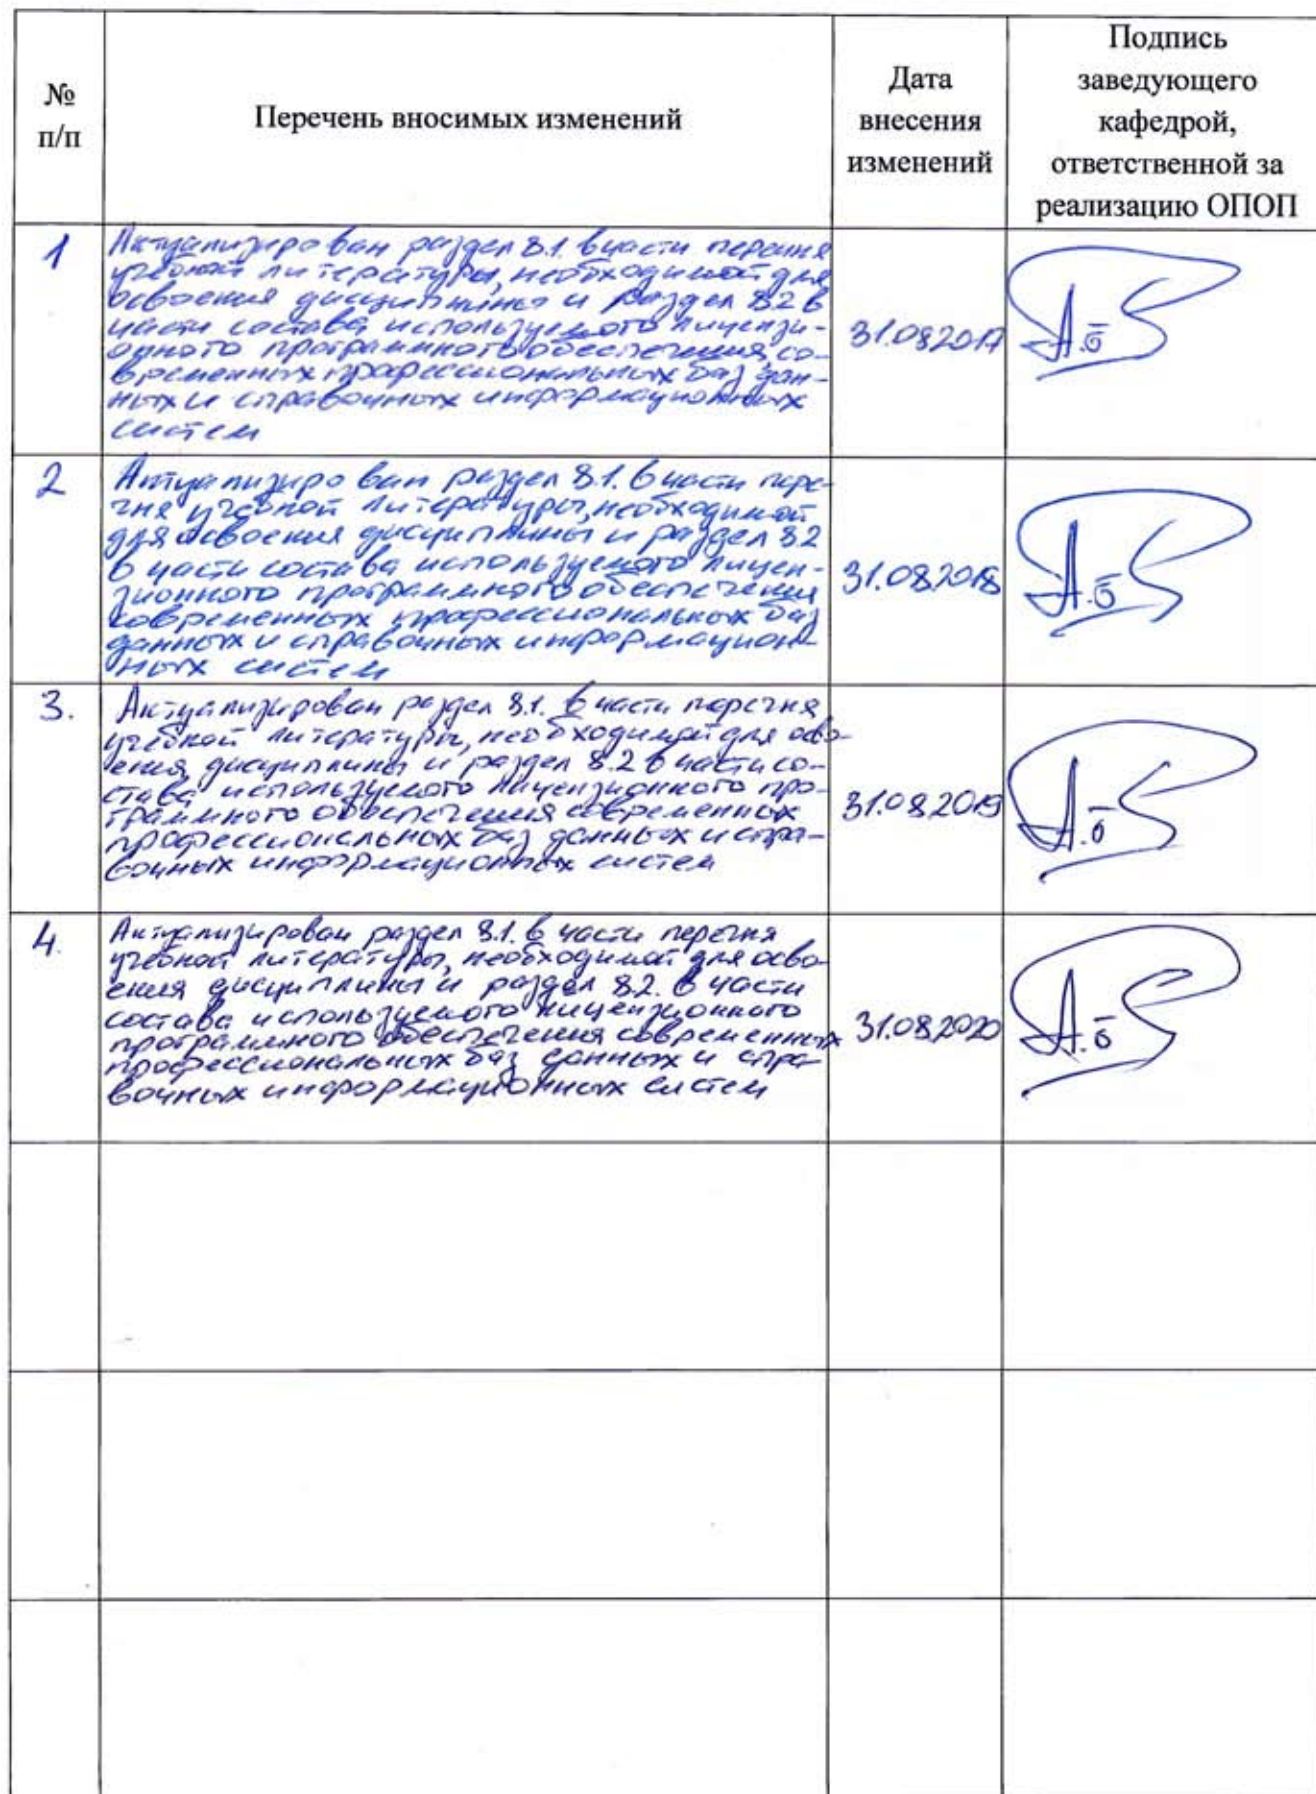 №
п/п
Перечень вносимых изменений
Дата
внесения
изменений
Подпись
заведующего
кафедрой,
ответственной за
реализацию ОПОП
1
Актуализирован раздел 8.1. в части перечня
учебной литературы, необходимой для
освоения дисциплины и раздел 8.2 в
части состава используемого лицензи-
онного программного обеспечения, со-
временных профессиональных баз дан-
ных и справочных информационных
систем
31.08.2017
А.Б
2
Актуализирован раздел 8.1. в части пере-
чня учебной литературы, необходимой
для освоения дисциплины и раздел 8.2
в части состава используемого лицен-
зионного программного обеспечения
современных профессиональных баз
данных и справочных информацион-
ных систем
31.08.2018
А.Б
3.
Актуализирован раздел 8.1. в части перечня
учебной литературы, необходимой для осво-
ения дисциплины и раздел 8.2 в части со-
става используемого лицензионного про-
граммного обеспечения современных
профессиональных баз данных и спра-
вочных информационных систем
31.08.2019
А.Б
4.
Актуализирован раздел 8.1. в части перечня
учебной литературы, необходимой для осво-
ения дисциплины и раздел 8.2. в части
состава используемого лицензионного
программного обеспечения современных
профессиональных баз данных и спра
вочных информационных систем
31.08.2020
А.Б